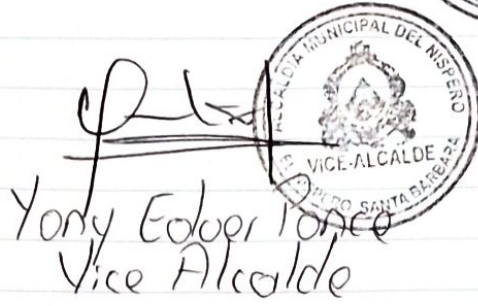 ALCALDIA MUNICIPAL DEL NISPERO
VICE-ALCALDE
EL NISPERO SANTA BARBARA
Yony Edver Ponce
Vice Alcalde